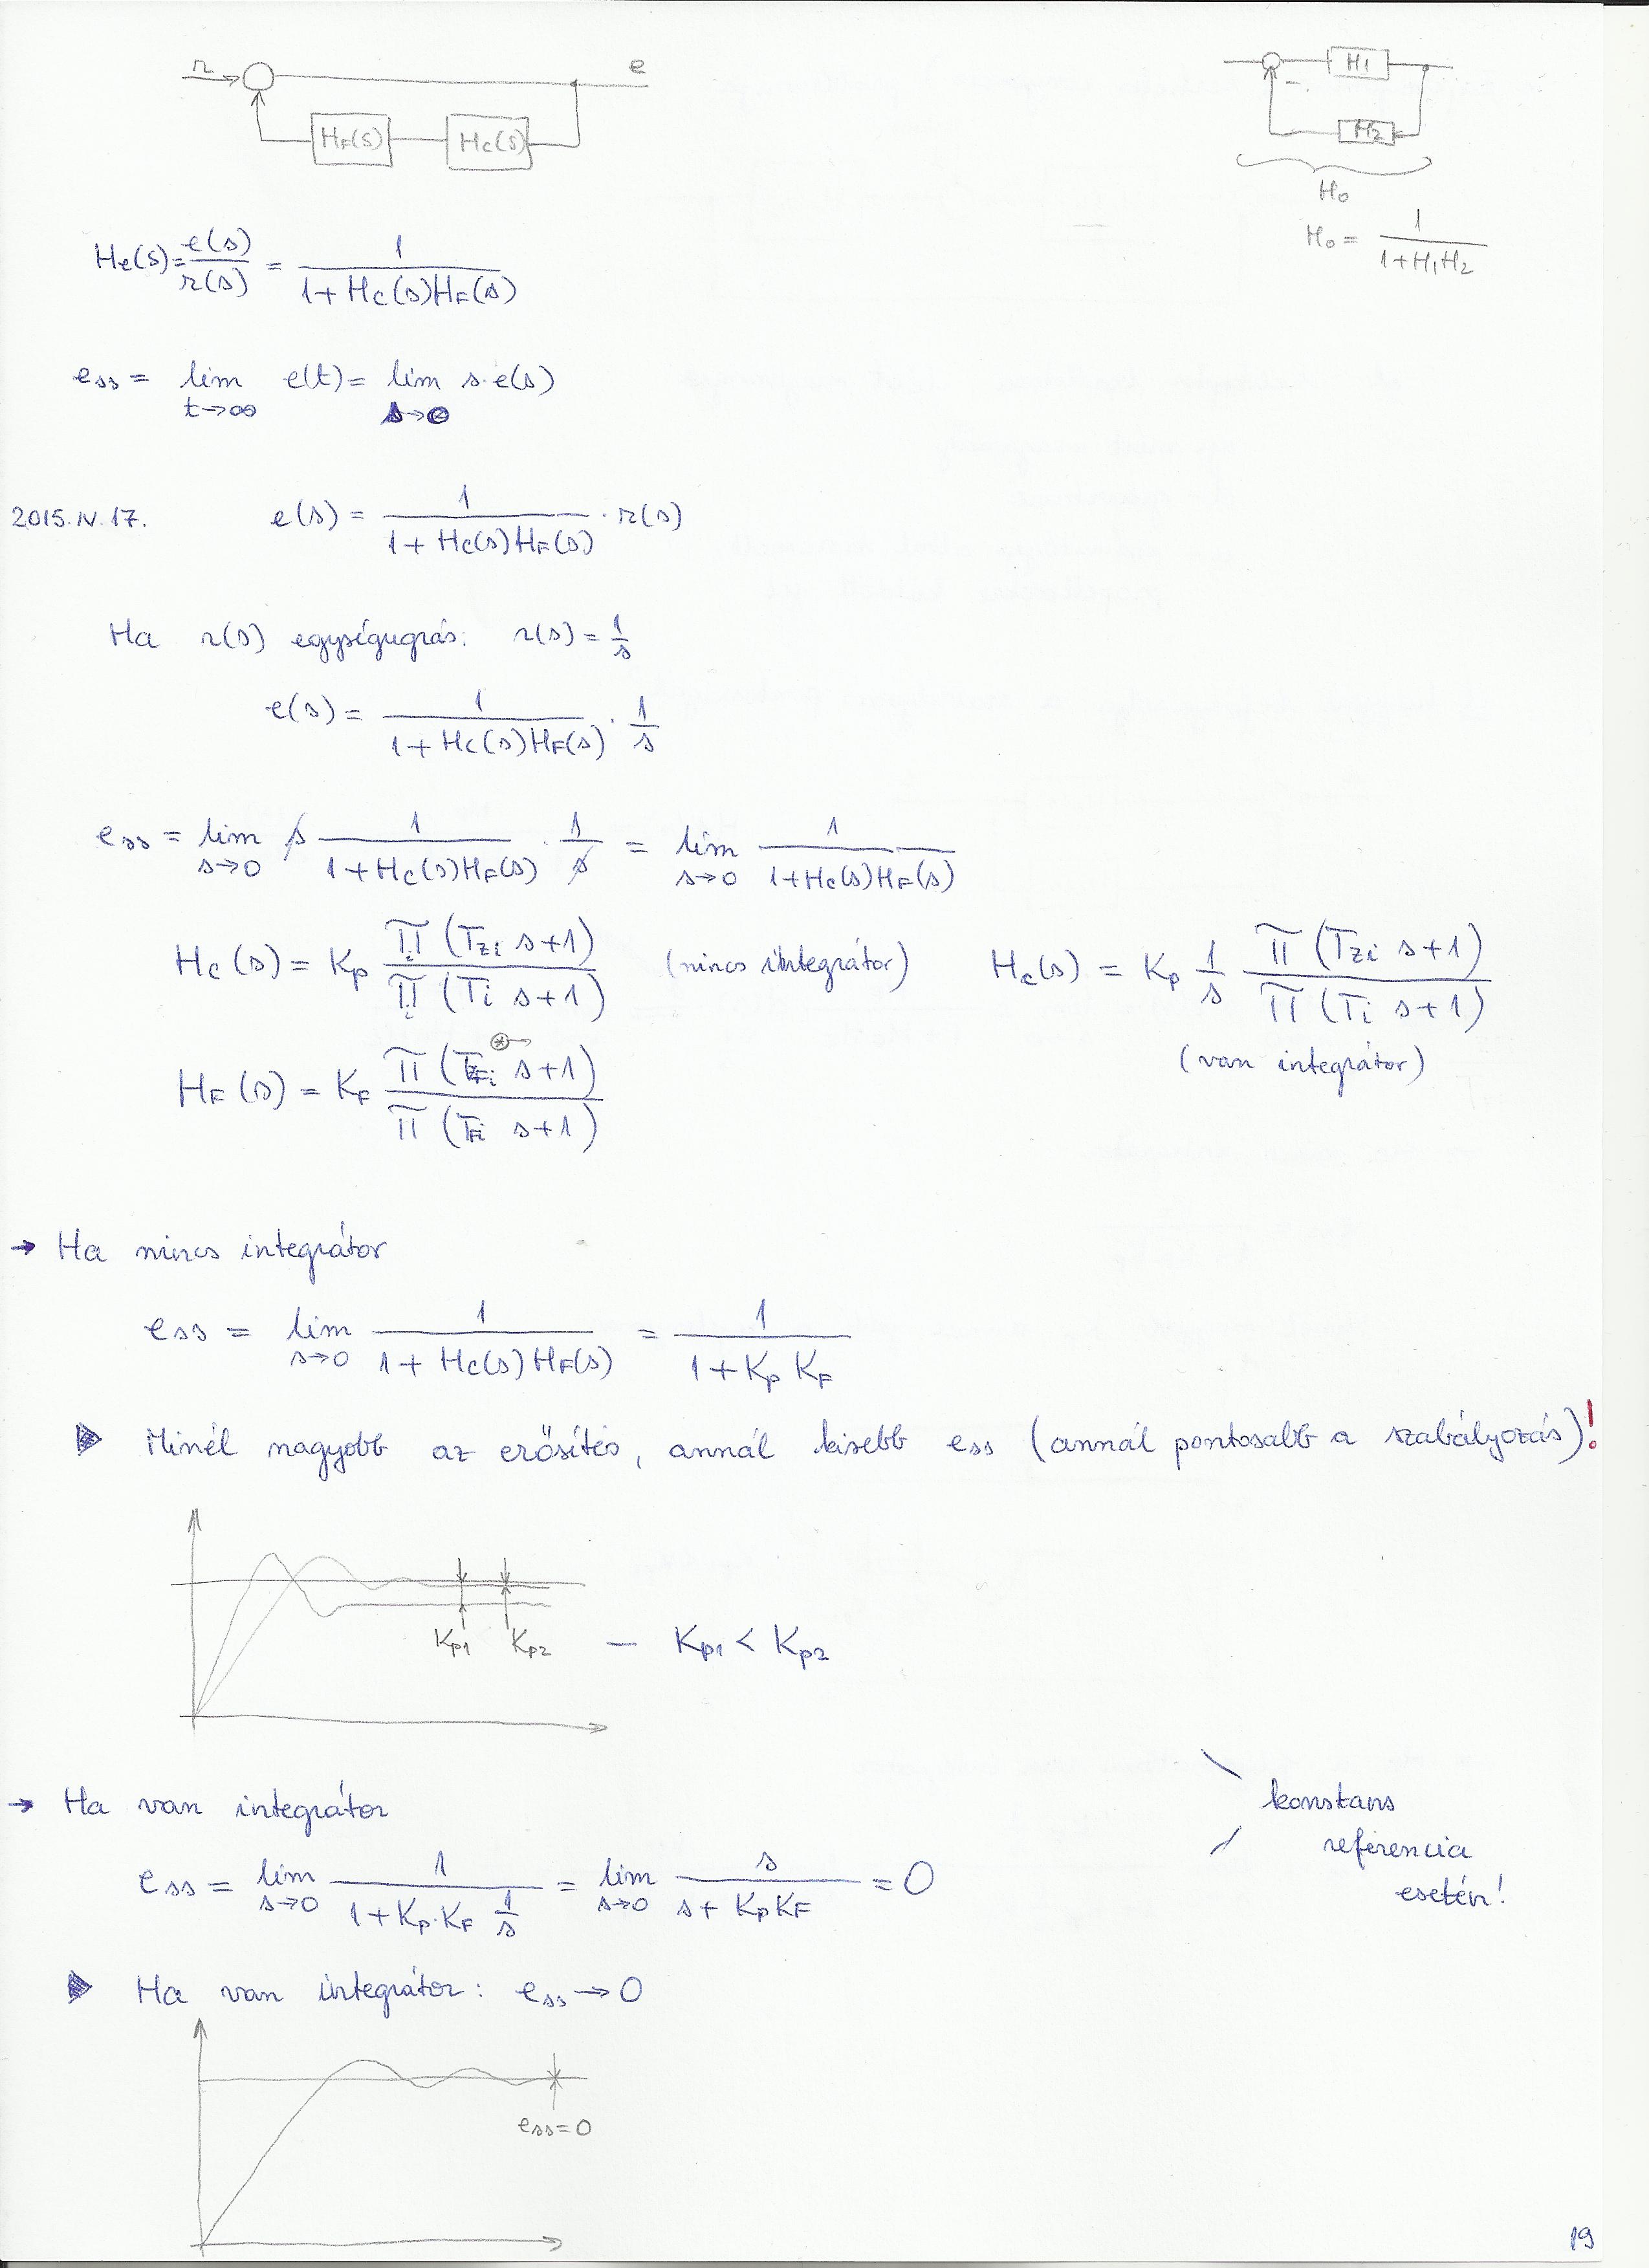 r e H1
HF(s) Hc(s) H2
H0
He(s) = e(s)/r(s) = 1/(1+Hc(s)HF(s)) H0 = 1/(1+H1H2)
ess = lim t→∞ e(t) = lim s→0 s·e(s)
2015.IV.17. e(s) = 1/(1+Hc(s)HF(s)) · r(s)
Ha r(s) egységugrás: r(s) = 1/s
e(s) = 1/(1+Hc(s)HF(s)) · 1/s
ess = lim s→0 s 1/(1+Hc(s)HF(s)) · 1/s = lim s→0 1/(1+Hc(s)HF(s))
Hc(s) = Kp Π i (Tzi s+1)/Π i (Ti s+1) (nincs integrátor) Hc(s) = Kp 1/s Π (Tzi s+1)/Π (Ti s+1)
(van integrátor)
HF(s) = KF Π (TzFi s+1)/Π (TFi s+1)
→ Ha nincs integrátor
ess = lim s→0 1/(1+Hc(s)HF(s)) = 1/(1+Kp KF)
▶ Minél nagyobb az erősítés, annál kisebb ess (annál pontosabb a szabályozás)!
Kp1 Kp2 – Kp1 < Kp2
→ Ha van integrátor
konstans
referencia
esetén!
ess = lim s→0 1/(1+Kp·KF 1/s) = lim s→0 s/(s+KpKF) = 0
▶ Ha van integrátor: ess → 0
ess=0
19